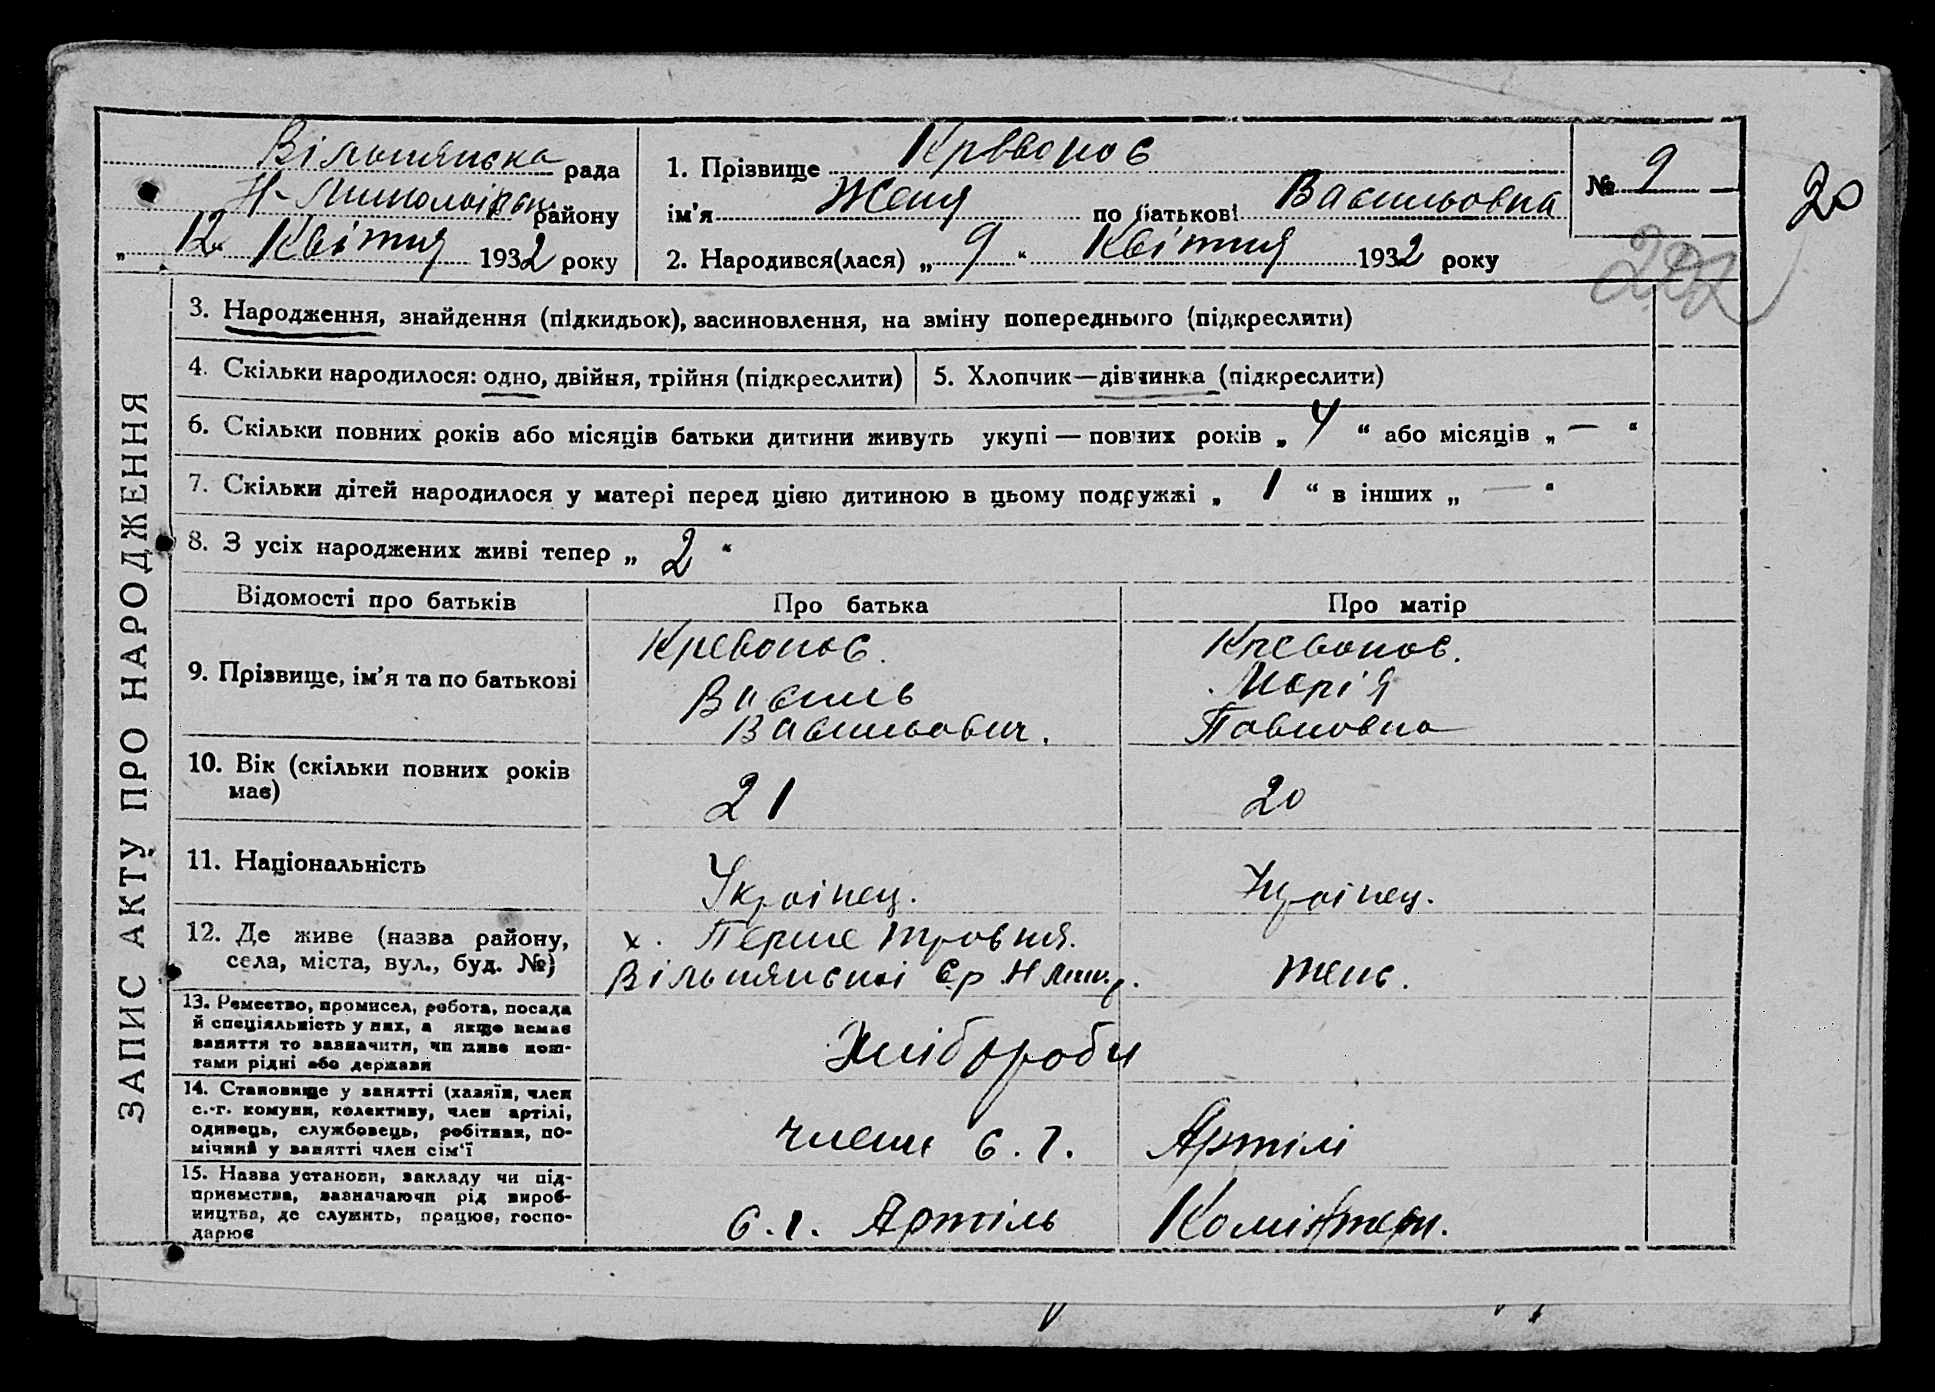 Вільшянська рада
Н-Миколаївськ району
„ 12 Квітня 1932 року
1. Прізвище Кревонос
ім’я Женя по батькові Васильовна
2. Народився(лася) „ 9 “ Квітня 1932 року
№ 9
20
ЗАПИС АКТУ ПРО НАРОДЖЕННЯ
3. Народження, знайдення (підкидьок), засиновлення, на зміну попереднього (підкреслити)
4. Скільки народилося: одно, двійня, трійня (підкреслити)
5. Хлопчик—дівчинка (підкреслити)
6. Скільки повних років або місяців батьки дитини живуть укупі — повних років „ 4 “ або місяців „ — “
7. Скільки дітей народилося у матері перед цією дитиною в цьому подружжі „ 1 “ в інших „ — “
8. З усіх народжених живі тепер „ 2 “
Відомості про батьків
Про батька
Про матір
9. Прізвище, ім’я та по батькові
Кревонос.
Василь
Васильович.
Кревонос.
Марія
Павловна
10. Вік (скільки повних років
має)
21
20
11. Національність
Українец.
Українец.
12. Де живе (назва району,
села, міста, вул., буд. №)
х. Перше Травня.
Вільнянської Ср
теж.
13. Ремество, промисел, робота, посада
й спеціяльність у них, а якщо немає
заняття то зазначити, чи живе кош-
тами рідні або держави
Хлібороби
14. Становище у занятті (хазяїн, член
с.-г. комуни, колективу, член артілі,
одинець, службовець, робітник, по-
мічний у занятті член сім’ї
члени с.г. Артілі
15. Назва установи, закладу чи під-
приємства, зазначаючи рід вироб-
ництва, де служить, працює, госпо-
дарює
с.г. Артіль Комінтерн.